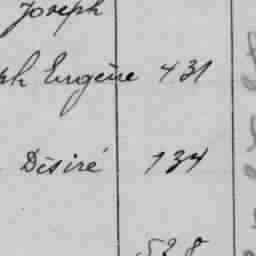 Joseph
ph Eugène 431
Désiré 134
528